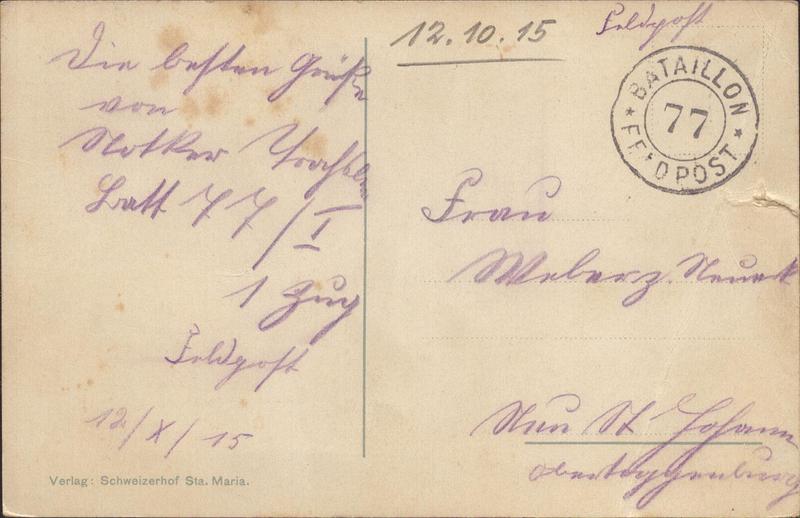 Die besten Grüße
von
Notker
Batt 77/I
1 Zug
Feldpost
12/X/15
Verlag: Schweizerhof Sta. Maria.
12.10.15
Feldpost
* BATAILLON *
77
FELDPOST
Frau
Weber z.
Neu St Johann
Obertoggenburg